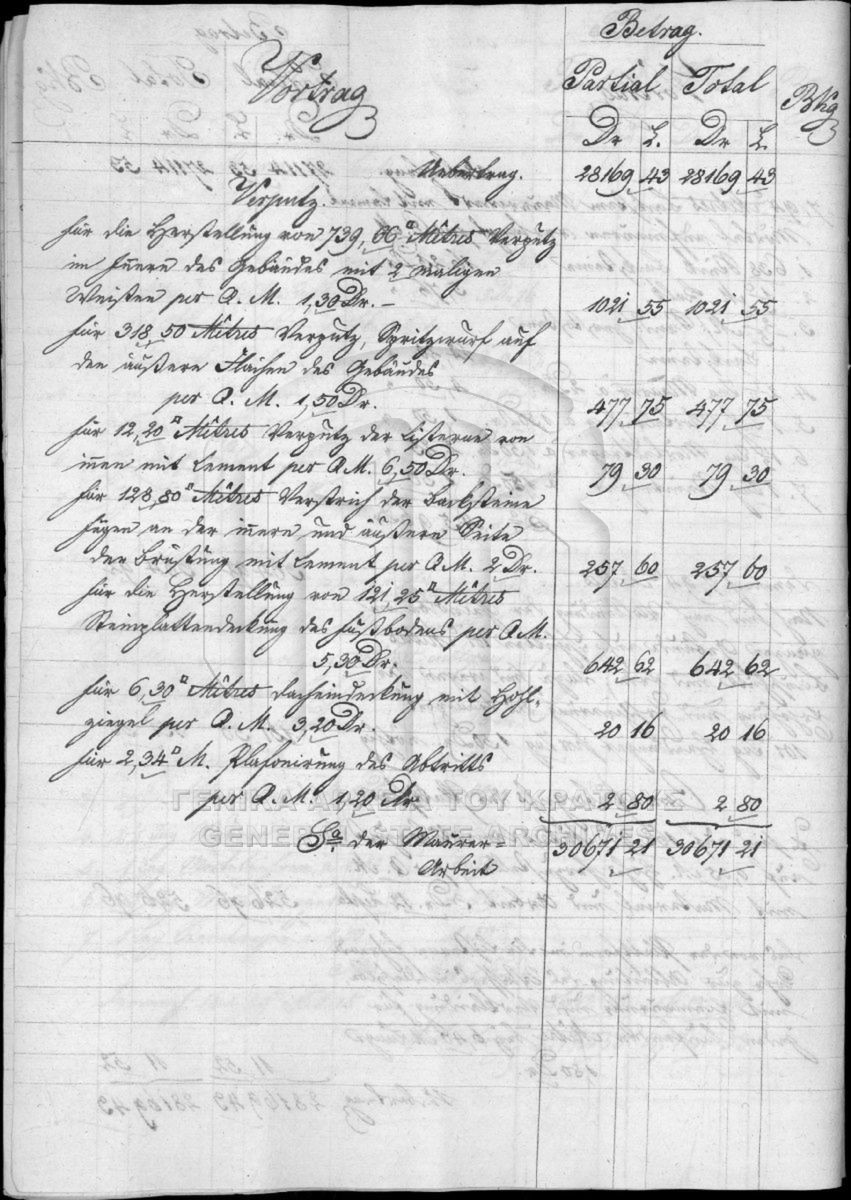 Betrag.
Vortrag
Partial Total
Bkg
Dr L. Dr L.
Uebertrag. 28169 43 28169 43
Verputz.
für die Herstellung von 739,66 □ Mêtres Verputz
im Innern des Gebäudes mit 2 maligen
Weißen per Q. M. 1,30 Dr. – 1021 55 1021 55
für 318,50 Mêtres Verputz, Spritzwurf auf
den äußere Flächen des Gebäudes
per Q. M. 1,50 Dr. 477 75 477 75
für 12,20 □ Mêtres Verputz der Cisterne von
innen mit Cement per Q M. 6,50 Dr. 79 30 79 30
für 128,80 □ Mêtres Verstrich der Backsteine
fugen an der innern und äußern Seite
der Brüstung mit Cement per Q M. 2 Dr. 257 60 257 60
für die Herstellung von 121,25 □ Mêtres
Steinplattendeckung des Fußbodens per Q M.
5,30 Dr. 642 62 642 62
für 6,30 □ Mêtres Dacheindeckung mit Hohl-
ziegel per Q. M. 3,20 Dr 20 16 20 16
für 2,34 □ M. Plafonirung des Abtritts
per Q. M. 1,20 Dr 2 80 2 80
ΓΕΝΙΚΑ ΑΡΧΕΙΑ ΤΟΥ ΚΡΑΤΟΥΣ
GENERAL STATE ARCHIVES
Sa. der Maurer= 30671 21 30671 21
Arbeit